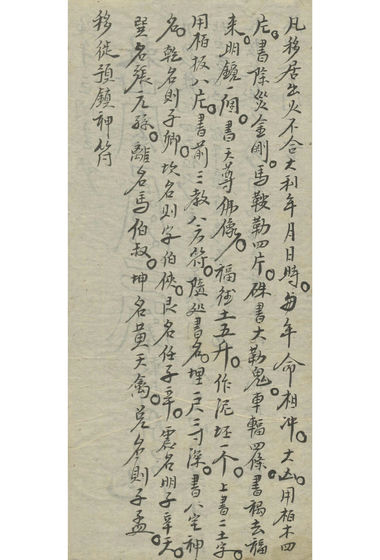 凡移居出火不合大利年月日時。與年命相冲。大凶。用柏木四
片。書除災金剛。馬鞍勒四片。硃書大勒鬼。車輻四條。書禍去福
来。明鏡一個。書天尊佛像。福德土五升。作泥坯一个。上書二土字。
用柏板八片。書前三教八方符。隨処書名。埋一尺二寸深。書八宅神
名。乾名則子卿。坎名則字伯俠。艮名任子平。震名明子辛天。
巽名張元孫。離名馬伯叔。坤名黃天禽。兌名則子孟。
移徙預鎮神符